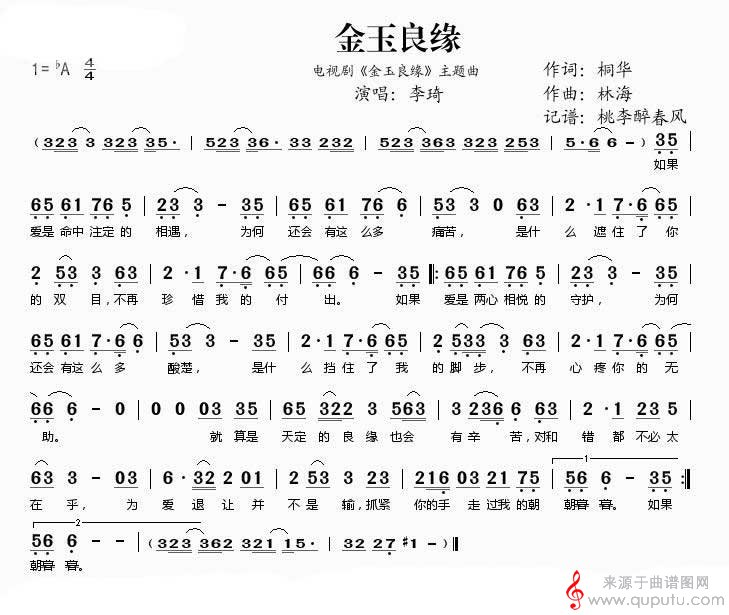 金玉良缘
1=♭A 4/4
电视剧《金玉良缘》主题曲
演唱：李琦
作词：桐华
作曲：林海
记谱：桃李醉春风
（323 3 323 35· | 523 36· 33 232 | 523 363 323 253 | 5·6 6 －）35 |
如果
65 61 76 5 | 23 3 － 35 | 65 61 7·6 6 | 53 3 0 63 | 2·1 7·6 65 |
爱是 命中 注定 的 相遇， 为何 还会 有这 么多 痛苦， 是什 么 遮住 了 你
2 53 3 63 | 2·1 7·6 65 | 66 6 － 35 |: 65 61 76 5 | 23 3 － 35 |
的 双 目，不再 珍 惜我 的 付 出。 如果 爱是 两心 相悦 的 守护， 为何
65 61 7·6 6 | 53 3 － 63 | 2·1 7·6 65 | 2 533 3 63 | 2·1 7·6 65 |
还会 有这 么多 酸楚， 是什 么 挡住 了 我 的 脚步， 不再 心 疼你 的 无
66 6 － 0 | 0 0 03 35 | 65 322 3 563 | 3 236 6 56 | 1 2 235 5 |
助。 就 算是 天定 的 良 缘也会 有 辛 苦，对和 错 都 不必 太
63 3 － 03 | 6· 32 2 01 | 2 53 3 23 | 216 03 21 75 | 1 56 6 － 35 :|
在 乎， 为 爱 退让 并 不 是 输，抓紧 你的手 走 过我 的朝 朝暮 暮。 如果
2 56 6 － － | （323 362 321 15· | 32 27 #1 －）||
朝暮 暮。
来源于曲谱图网
www.quputu.com